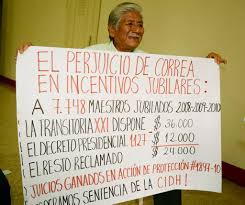 EL PERJUICIO DE CORREA
EN INCENTIVOS JUBILARES:
A 7.748 MAESTROS JUBILADOS 2008-2009-2010
LA TRANSITORIA XXI DISPONE - $ 36.000
EL DECRETO PRESIDENCIAL 1127 - $ 12.000
EL RESTO RECLAMADO $ 24.000
JUICIOS GANADOS EN ACCIÓN DE PROTECCIÓN #1849-10
SENTENCIA DE LA CIDH!